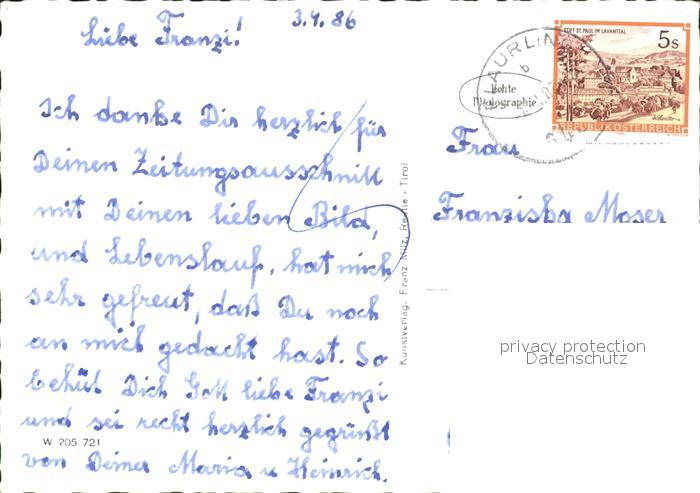 3.4.86
Liebe Franzi!
Ich danke Dir herzlich für
Deinen Zeitungsausschnitt
mit Deinen lieben Bild,
und Lebenslauf, hat mich
sehr gefreut, daß Du noch
an mich gedacht hast. So
behüt Dich Gott liebe Franzi
und sei recht herzlich gegrüßt
W 205 721
von Deiner Maria u Heinrich.
Kunstverlag: Franz Milz, Reutte - Tirol
STIFT ST. PAUL IM LAVANTTAL
5s
REPUBLIK ÖSTERREICH
Echte
Photographie
b
Frau
Franziska Moser
privacy protection
Datenschutz